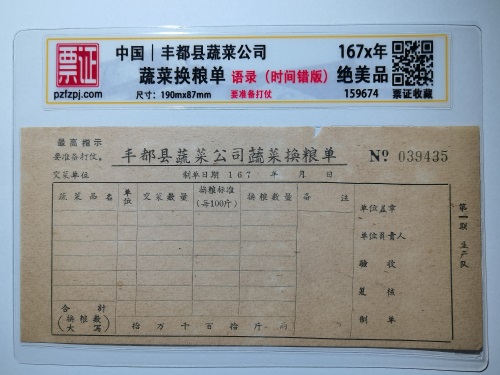 票证
pzfzpj.com
中国｜丰都县蔬菜公司
蔬菜换粮单 语录（时间错版）
尺寸：190mmx87mm 要准备打仗
167x年
绝美品
159674 票证收藏
最高指示
要准备打仗。
丰都县蔬菜公司蔬菜换粮单
No 039435
交菜单位
制单日期 167 年 月 日
蔬菜品名 单位 交菜数量 换粮标准（每100斤） 换粮数量 备注
单位盖章
单位负责人
验收
复核
制单
合计
（换粮数大写） 拾万千百拾斤 两
第一联 生产队